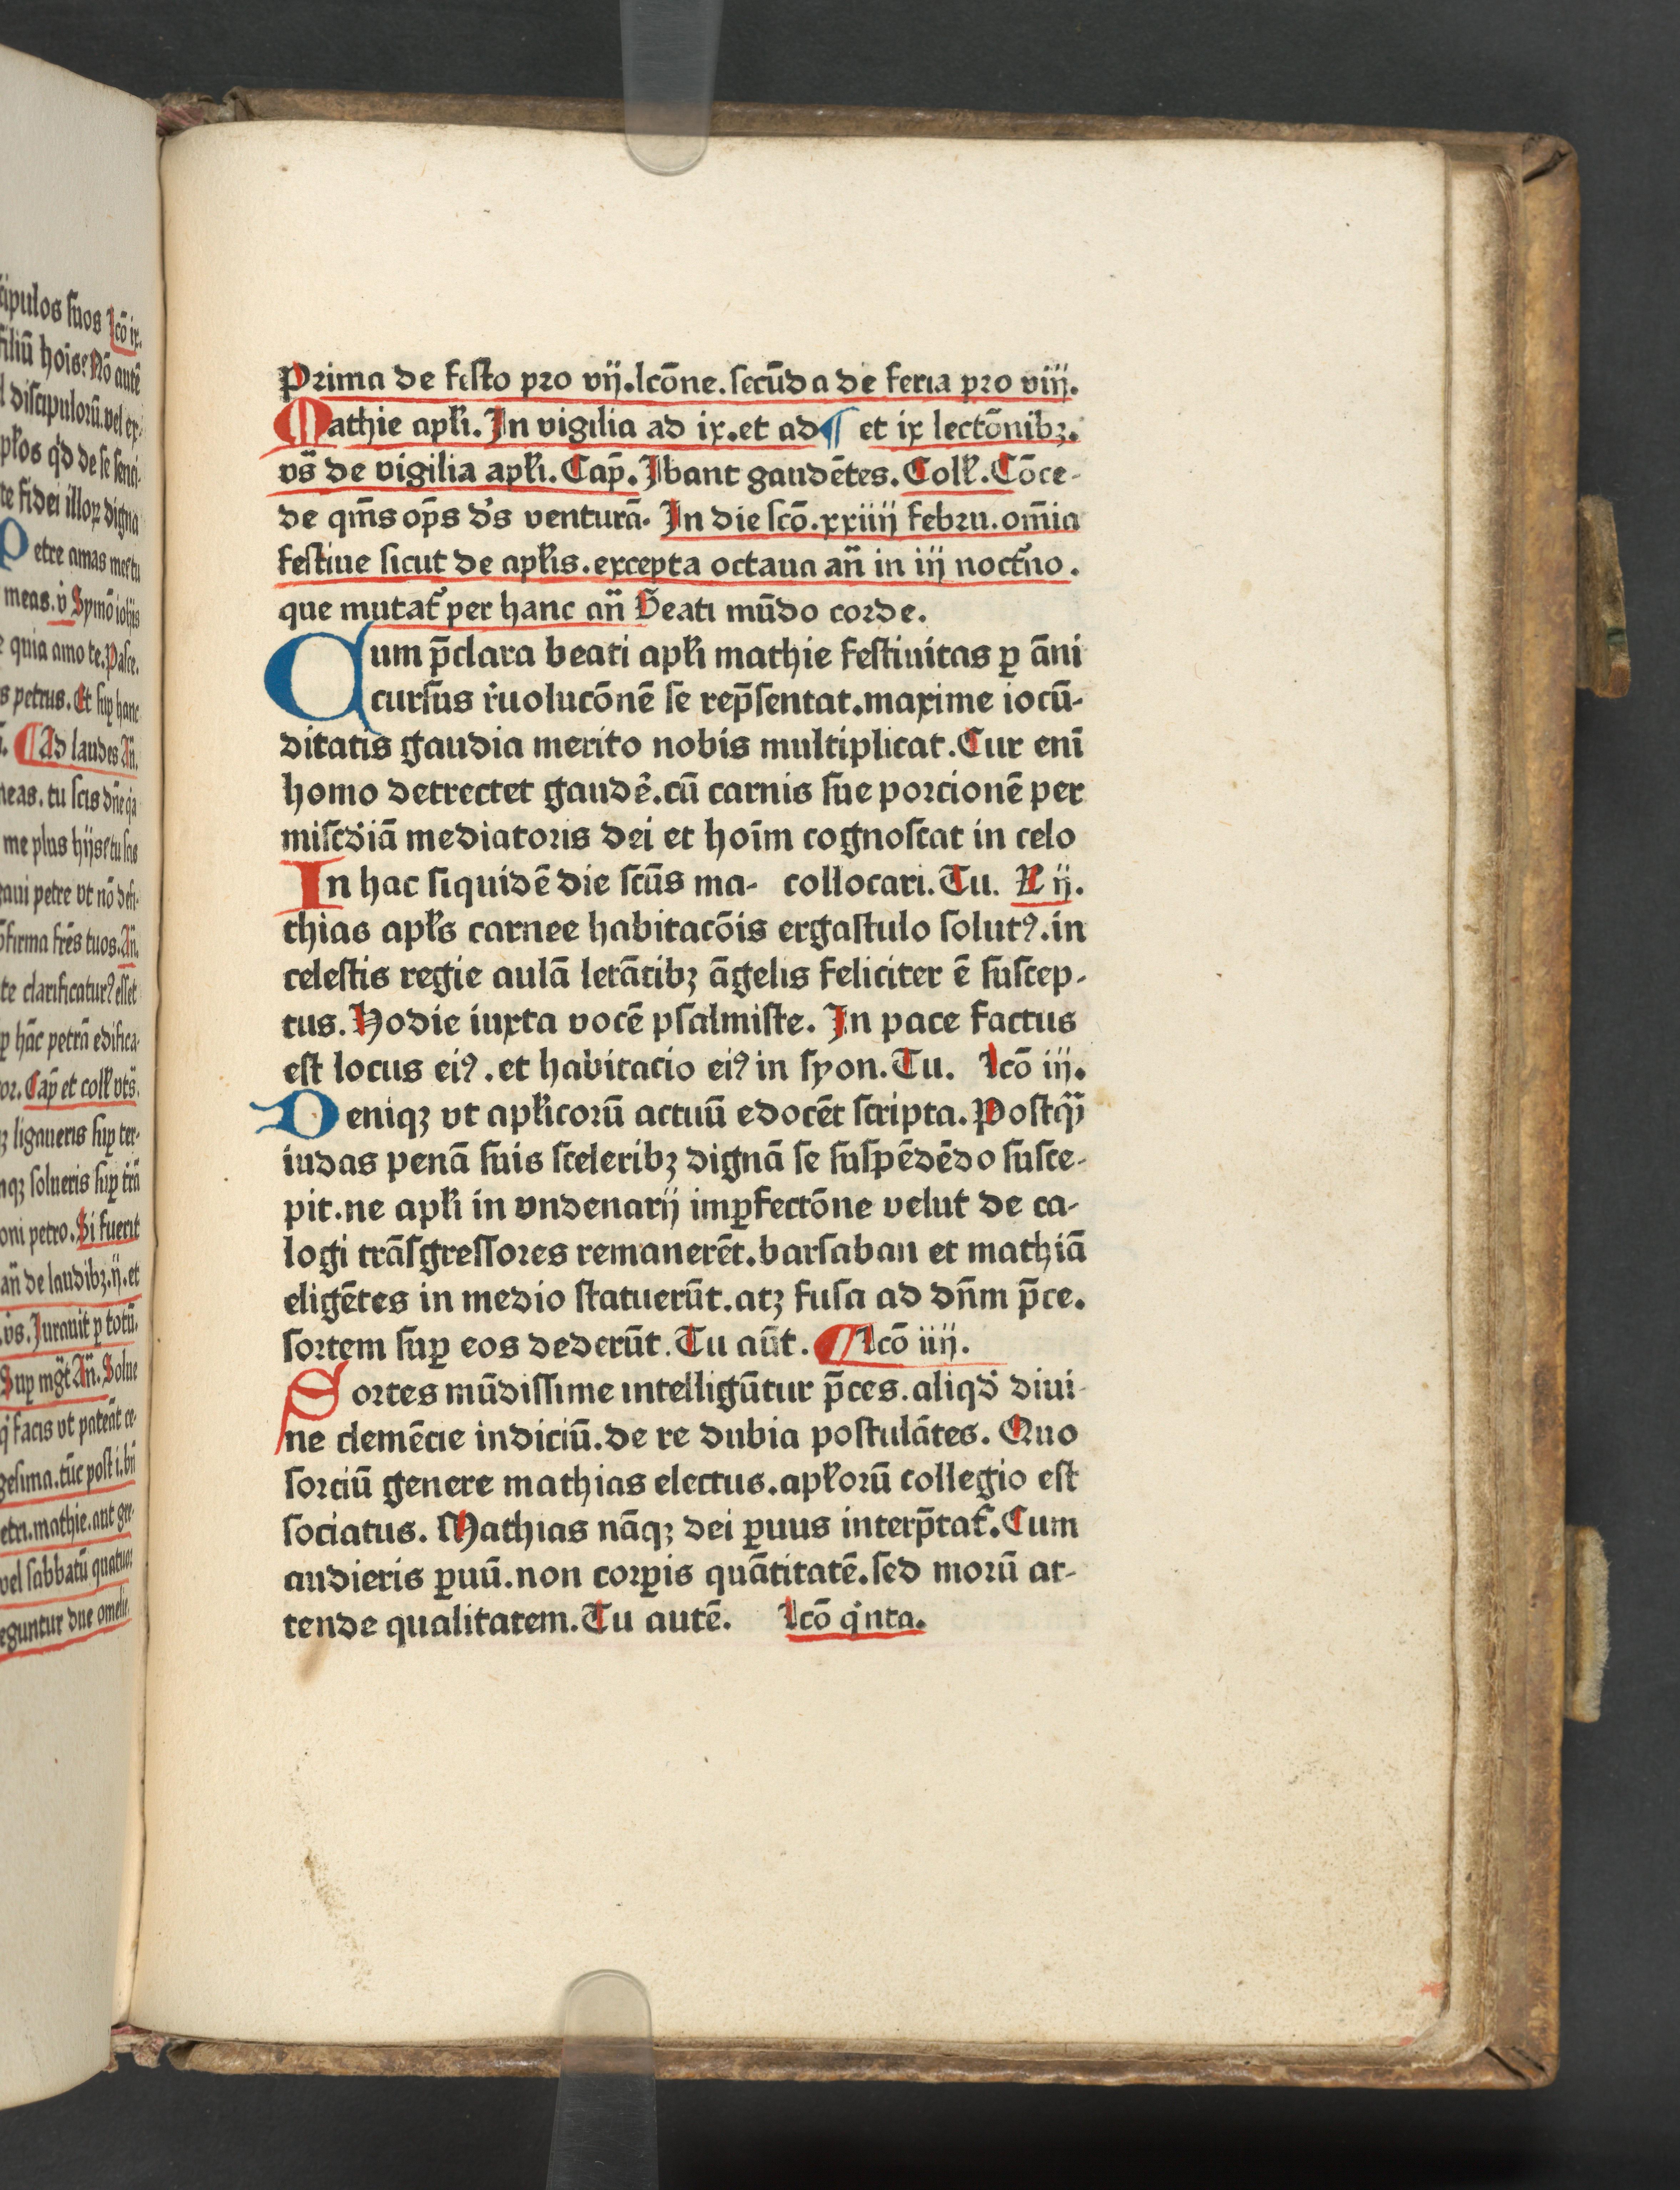 cipulos suos lcō ix.
filiū hoīs? Nō autē
l discipulorū. vel ex-
pl̄os qd̓ de se senci-
te fidei illoꝝ digna
Petre amas me? tu
meas. v̄ Symō iohīs
quia amo te. Pasce.
s petrus. Et suꝑ hanc
¶ Ad laudes Añ.
meas. tu scis dn̄e q̓a
me plus hijs? tu scis
gaui petre vt nō defi-
ōfirma fr̄es tuos. Añ.
te clarificaturꝰ esset
ꝑ hāc petrā edifica-
or. Cap̄ et coll̄ vts̄.
ꝫ ligaueris suꝑ ter-
nqꝫ solueris suꝑ tr̄ā
oni petro. Si fuerit
añ de laudibꝫ. ij. et
v̄s. Jurauit ꝑ totū.
Sup mḡt Añ. Solue
q̓ facis vt pateāt ce-
gesima. tūc post i. bn̄
etri. mathie. aut gre-
vel sabbatū quatuor
eguntur due omelie.
Prima de festo pro vij. lcōne. secūda de feria pro viij.
Mathie apl̄i. In vigilia ad ix. et ad ¶ et ix lectōnibꝫ.
vs̄ de vigilia apl̄i. Cap̄. Jbant gaudētes. Coll̄. Cōce-
de qm̄s op̄s d̓s venturā. In die scō. xxiiij febru. om̄ia
festiue sicut de apl̄is. excepta octaua añ in iij noct̄no.
que mutat̄ per hanc añ Beati mūdo corde.
Cum p̄clara beati apl̄i mathie festiuitas ꝑ āni
cursus r̓uolucōnē se rep̄sentat. maxime iocū-
ditatis gaudia merito nobis multiplicat. Cur eni̅
homo detrectet gaudē̓. cū carnis sue porcionē per
miscd̓iā mediatoris dei et hoīm cognoscat in celo
In hac siquidē die scūs ma- collocari. Tu. L ij.
thias apl̄s carnee habitacōis ergastulo solutꝰ. in
celestis regie aulā letātibꝫ āgelis feliciter ē suscep-
tus. Hodie iuxta vocē psalmiste. In pace factus
est locus eiꝰ. et habitacio eiꝰ in syon. Tu. lcō iij.
Deniqꝫ vt apl̄icorū actuū edocēt scripta. Postq̄ꝫ
iudas penā suis sceleribꝫ dignā se suspēdēdo susce-
pit. ne apl̄i in vndenarij imꝑfectōne velut de ca-
logi trāsgressores remanerēt. barsaban et mathiā
eligētes in medio statuerūt. atꝫ fusa ad dn̄m p̄ce.
sortem suꝑ eos dederūt. Tu aūt. ¶ lcō iiij.
Sortes mūdissime intelligūtur p̄ces. aliqd̓ diui-
ne clemēcie indiciū. de re dubia postulātes. Quo
sorciū genere mathias electus. apl̄orū collegio est
sociatus. Mathias nāqꝫ dei ꝑuus interp̄tat̄. Cum
audieris ꝑuū. non corꝑis quātitatē. sed morū at-
tende qualitatem. Tu autē. lcō q̓nta.